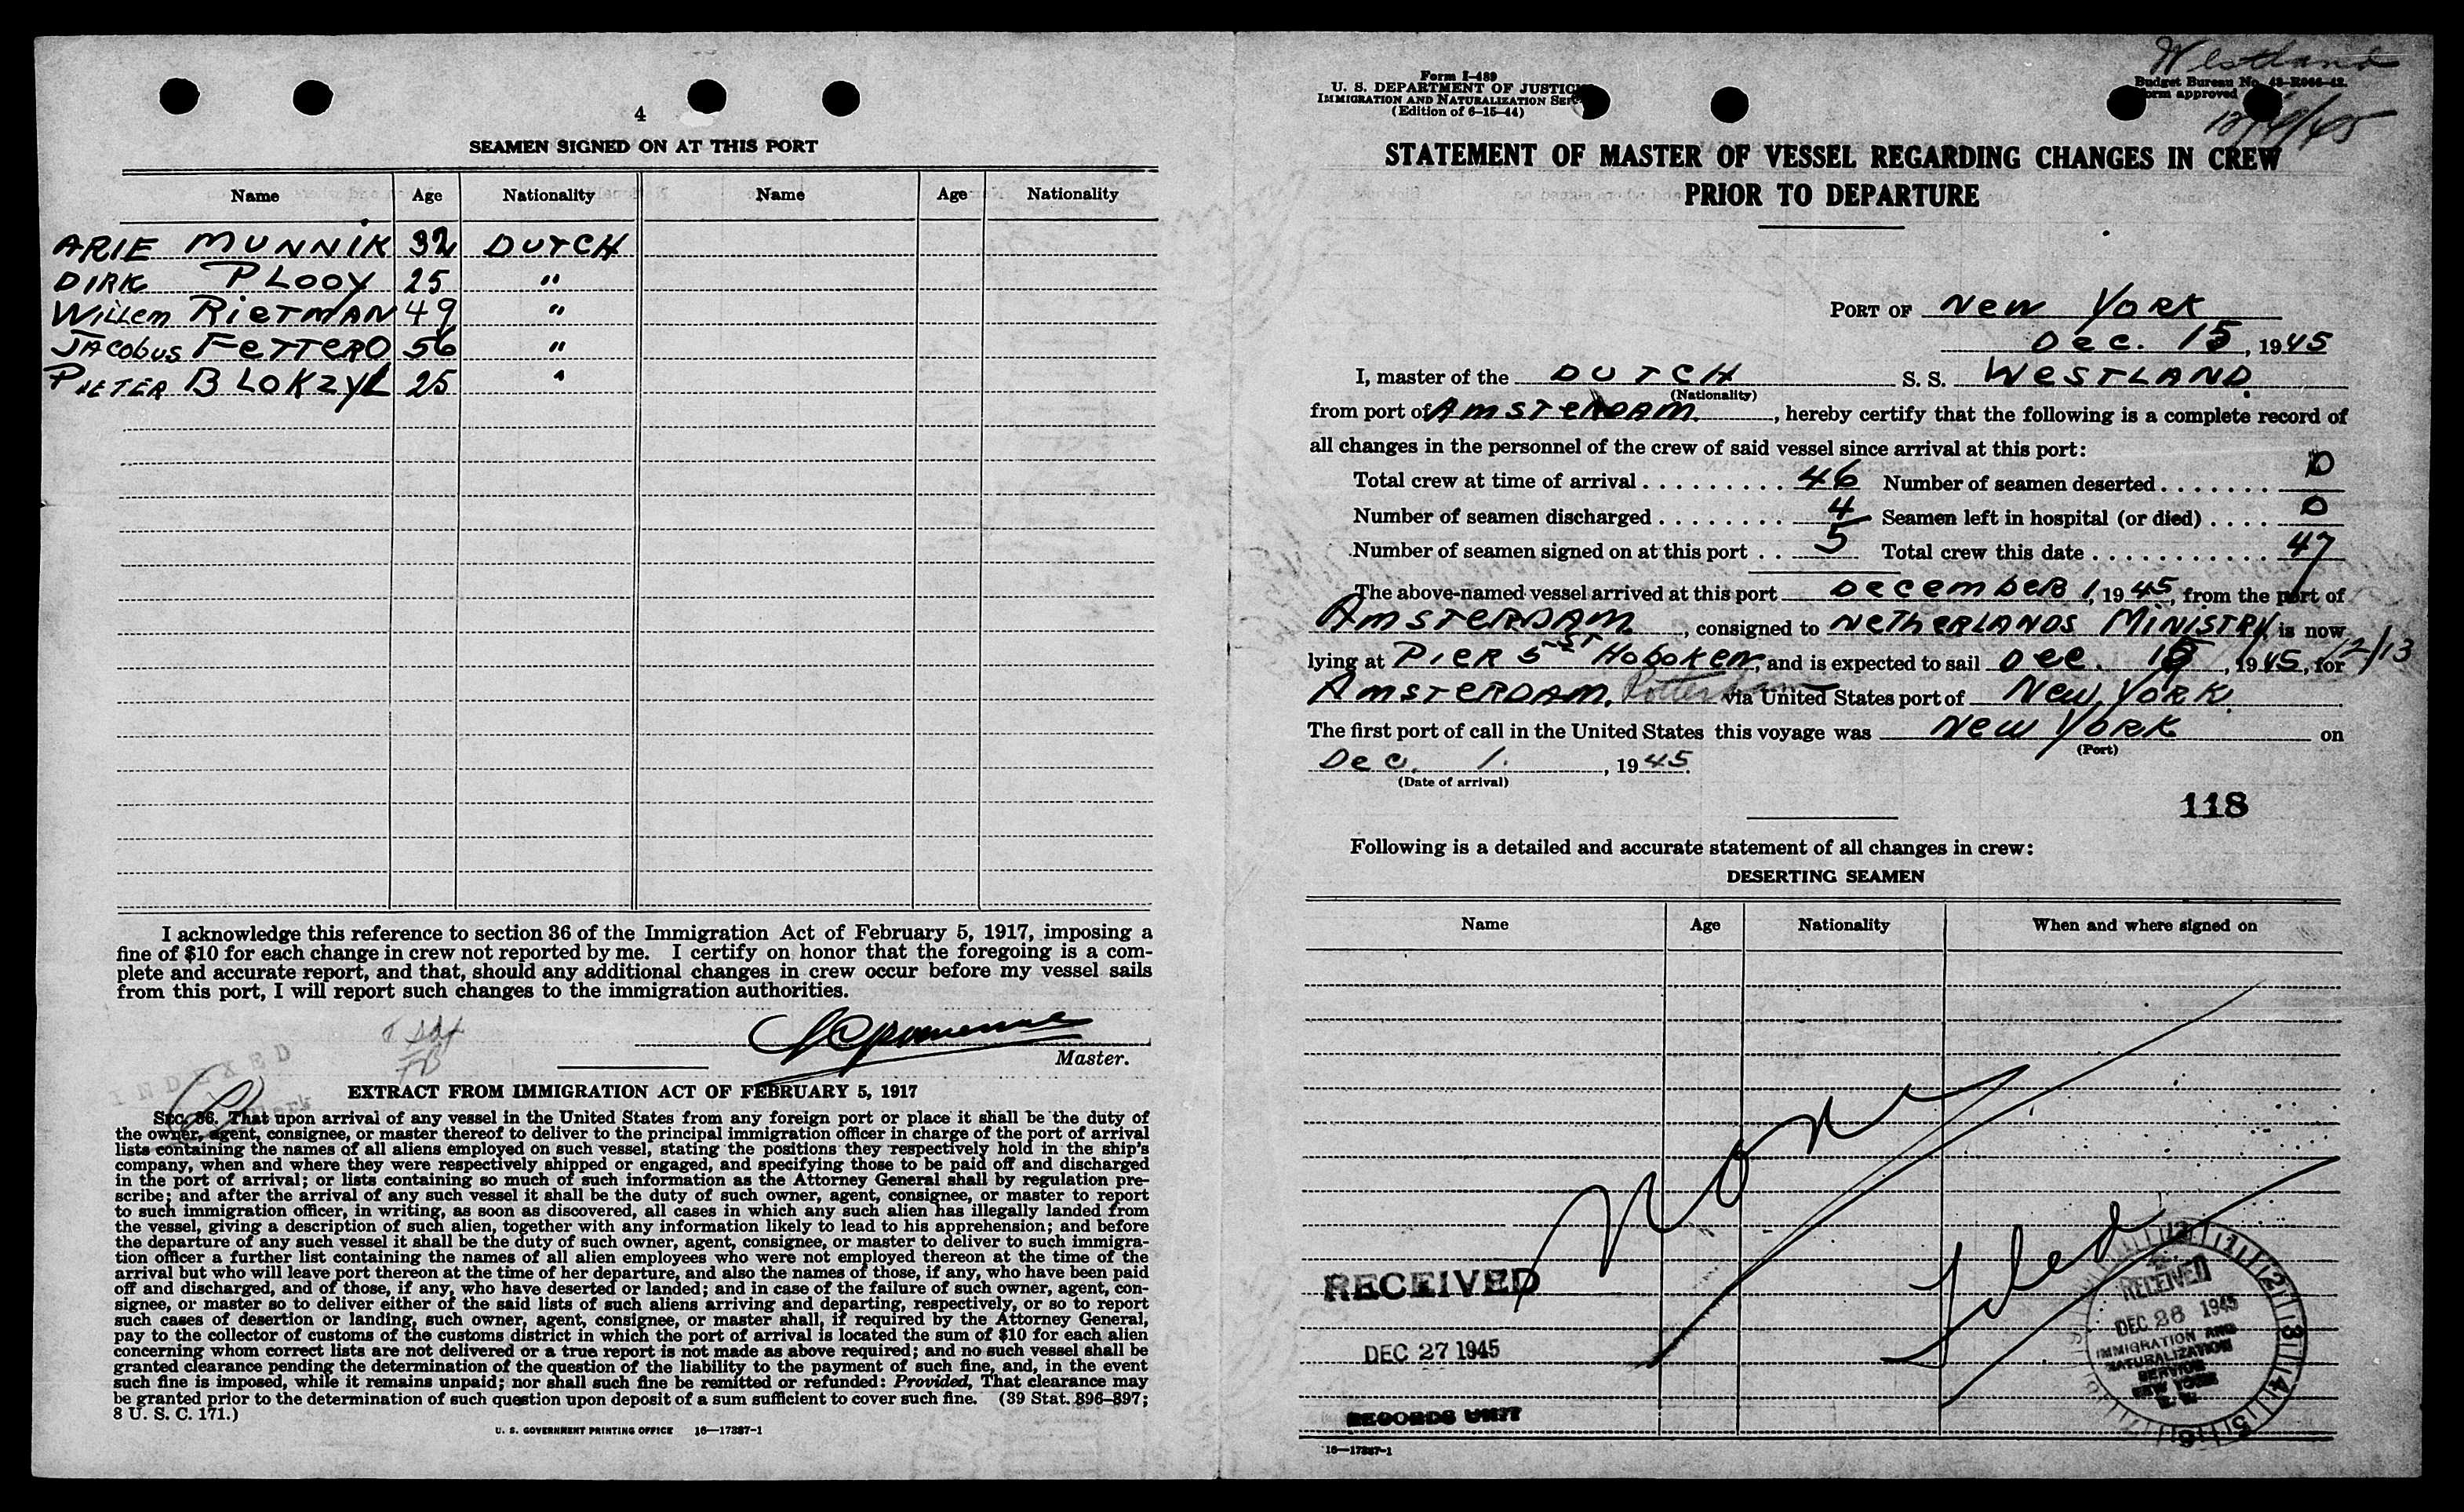 4
SEAMEN SIGNED ON AT THIS PORT
Name Age Nationality Name Age Nationality
ARIE MUNNIK 32 DUTCH
DIRK PLOOY 25 "
WILLem RieTMAN 49 "
JACobus FeTTERO 56 "
PIETER BLOKZYL 25 "
I acknowledge this reference to section 36 of the Immigration Act of February 5, 1917, imposing a
fine of $10 for each change in crew not reported by me. I certify on honor that the foregoing is a com-
plete and accurate report, and that, should any additional changes in crew occur before my vessel sails
from this port, I will report such changes to the immigration authorities.
Master.
INDEXED
EXTRACT FROM IMMIGRATION ACT OF FEBRUARY 5, 1917
SEC. 36. That upon arrival of any vessel in the United States from any foreign port or place it shall be the duty of
the owner, agent, consignee, or master thereof to deliver to the principal immigration officer in charge of the port of arrival
lists containing the names of all aliens employed on such vessel, stating the positions they respectively hold in the ship's
company, when and where they were respectively shipped or engaged, and specifying those to be paid off and discharged
in the port of arrival; or lists containing so much of such information as the Attorney General shall by regulation pre-
scribe; and after the arrival of any such vessel it shall be the duty of such owner, agent, consignee, or master to report
to such immigration officer, in writing, as soon as discovered, all cases in which any such alien has illegally landed from
the vessel, giving a description of such alien, together with any information likely to lead to his apprehension; and before
the departure of any such vessel it shall be the duty of such owner, agent, consignee, or master to deliver to such immigra-
tion officer a further list containing the names of all alien employees who were not employed thereon at the time of the
arrival but who will leave port thereon at the time of her departure, and also the names of those, if any, who have been paid
off and discharged, and of those, if any, who have deserted or landed; and in case of the failure of such owner, agent, con-
signee, or master so to deliver either of the said lists of such aliens arriving and departing, respectively, or so to report
such cases of desertion or landing, such owner, agent, consignee, or master shall, if required by the Attorney General,
pay to the collector of customs of the customs district in which the port of arrival is located the sum of $10 for each alien
concerning whom correct lists are not delivered or a true report is not made as above required; and no such vessel shall be
granted clearance pending the determination of the question of the liability to the payment of such fine, and, in the event
such fine is imposed, while it remains unpaid; nor shall such fine be remitted or refunded: Provided, That clearance may
be granted prior to the determination of such question upon deposit of a sum sufficient to cover such fine. (39 Stat. 896-897;
8 U. S. C. 171.)
U. S. GOVERNMENT PRINTING OFFICE 16—17387-1
Westland
Form I-489
U. S. DEPARTMENT OF JUSTICE
IMMIGRATION AND NATURALIZATION
(Edition of 6-15-44)
Budget Bureau No. 43-R066-42.
Form approved
STATEMENT OF MASTER OF VESSEL REGARDING CHANGES IN CREW
PRIOR TO DEPARTURE
PORT OF New YORK
Dec. 15, 1945
I, master of the DUTCH S. S. WeSTLAND.
(Nationality)
from port of AmSTeRDAM, hereby certify that the following is a complete record of
all changes in the personnel of the crew of said vessel since arrival at this port:
Total crew at time of arrival . . . . . . . . . 46 Number of seamen deserted . . . . . . . 0
Number of seamen discharged . . . . . . . . 4 Seamen left in hospital (or died) . . . . 0
Number of seamen signed on at this port . . 5 Total crew this date . . . . . . . . . . . 47
The above-named vessel arrived at this port DecembeR 1, 1945, from the port of
AmSTeRDAM, consigned to NeTheRLANDS MiNiSTRY, is now
lying at PieR 5 ST HoboKen, and is expected to sail Dec. 15, 1945, for 12/13
AmSTeRDAM. Rotterdam via United States port of New YORK.
The first port of call in the United States this voyage was New YORK on
(Port)
Dec. 1. , 1945.
(Date of arrival)
118
Following is a detailed and accurate statement of all changes in crew:
DESERTING SEAMEN
Name Age Nationality When and where signed on
None
RECEIVED
DEC 27 1945
RECORDS UNIT
RECEIVED
DEC 26 1945
IMMIGRATION AND
NATURALIZATION
SERVICE
NEW YORK
N. Y.
16—17387-1